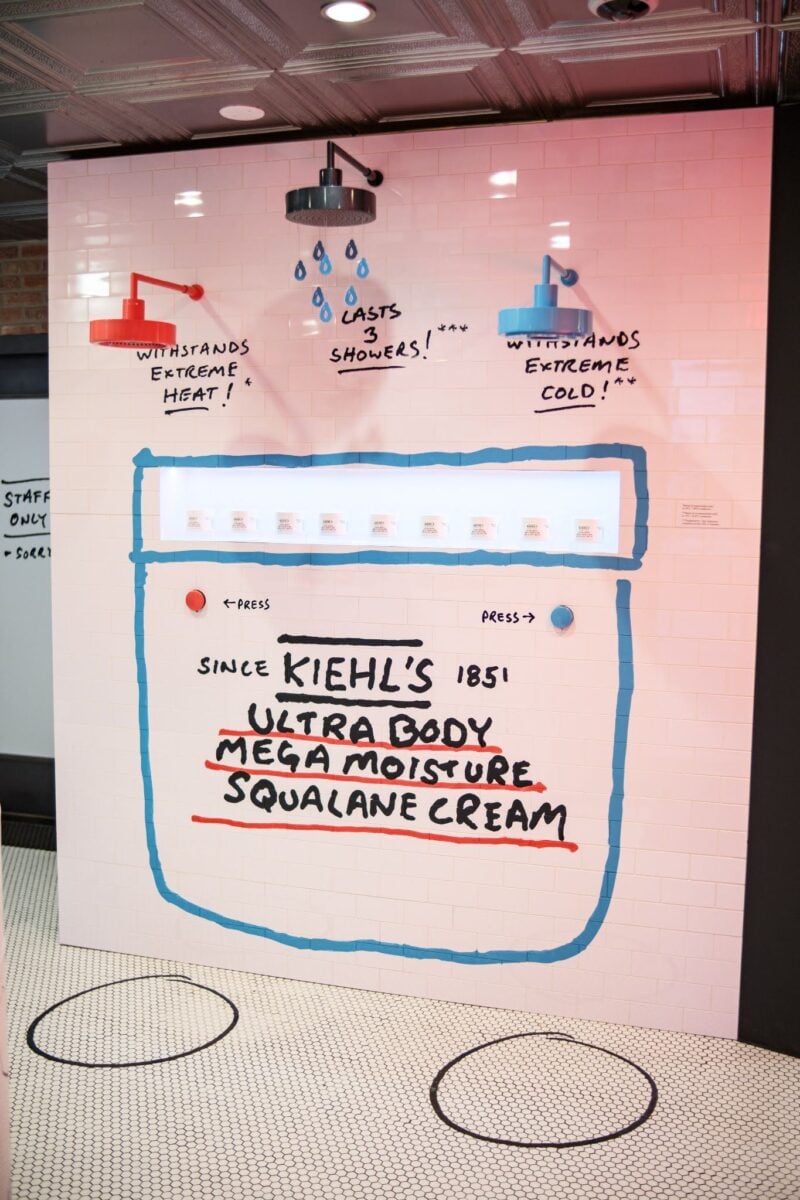 WITHSTANDS
EXTREME
HEAT!*
LASTS
3
SHOWERS!***
WITHSTANDS
EXTREME
COLD!**
STAFF
ONLY
SORRY
←PRESS
PRESS→
SINCE KIEHL'S 1851
ULTRA BODY
MEGA MOISTURE
SQUALANE CREAM